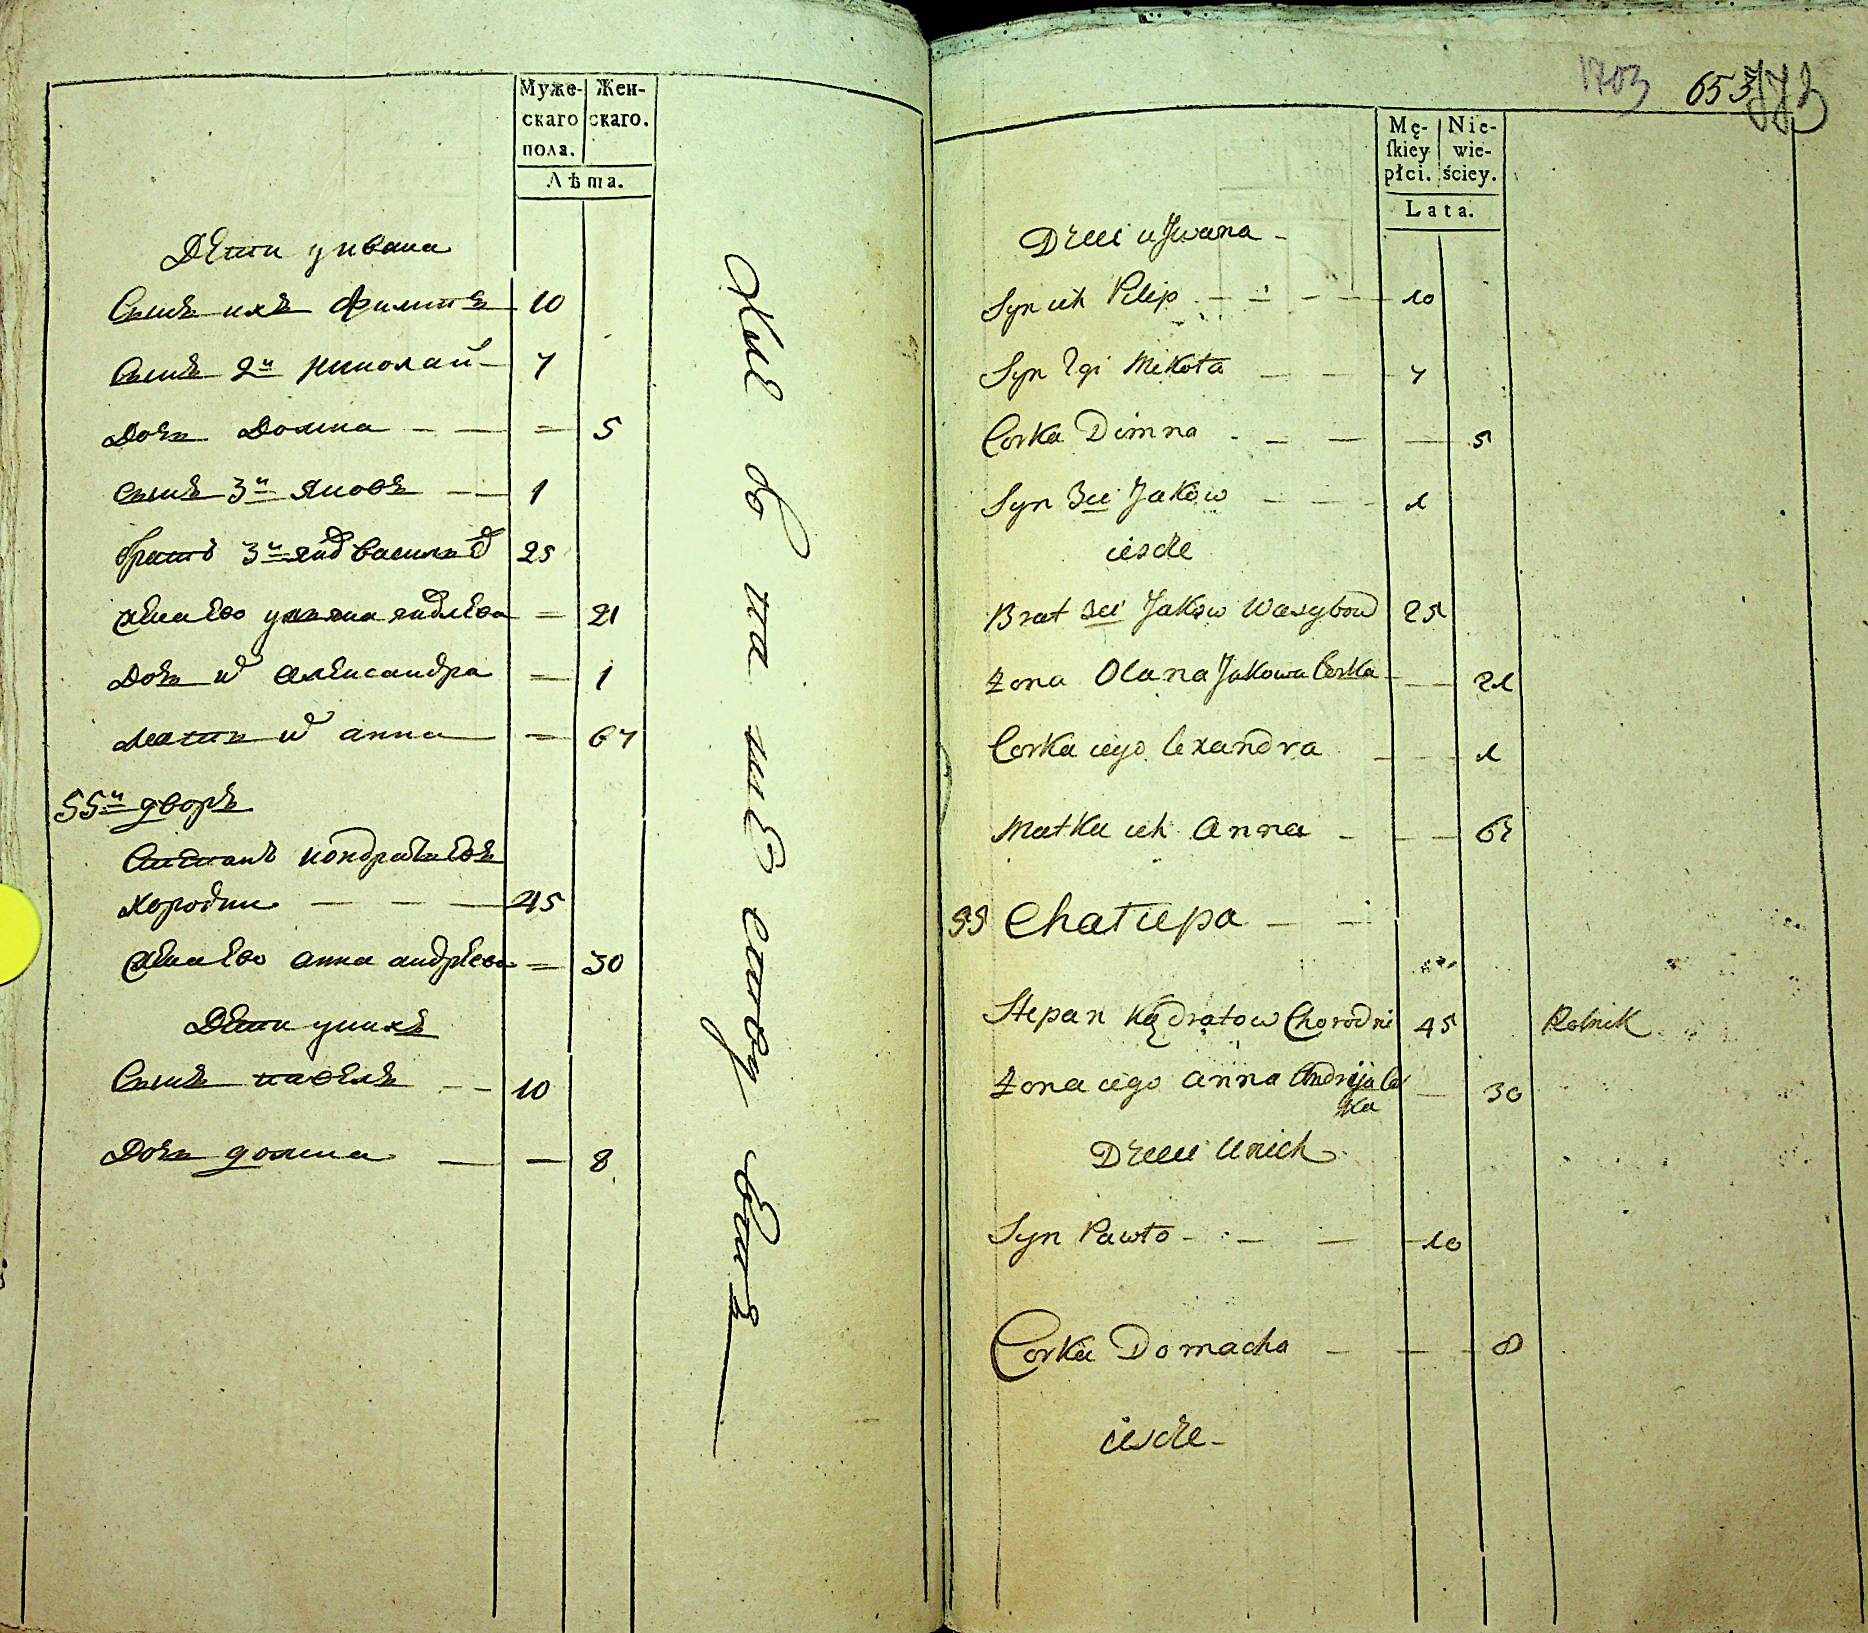 Муже-
скаго
пола.
Жен-
скаго.
Лѣта.
Дети у ивана
Сынъ ихъ Филипъ 10
Сынъ 2й николай 7
Дочь Домна 5
Сынъ 3й яковъ 1
братъ 3й яков василев 25
жена ево ульяна яковлева 21
Дочь их александра 1
мать их анна 67
55й дворъ
Степанъ кондратьевъ
Хородни 45
жена ево анна андреева 30
Дети у нихъ
Сынъ павелъ 10
Дочь домна 8
1703 653
Mę-
ſkiey
płci.
Nie-
wie-
ściey.
Lata.
Dzieci u Jwana
Syn ich Pilip 10
Syn 2gi Mikoła 7
Corka Dimna 5
Syn 3ci Jakow 1
ieszcze
Brat 3ci Jakow Wasylow 25
Żona Olana Jakowa Corka 21
Corka iego lexandra 1
Matka ich Anna 67
55 Chałupa
Stepan Kądratow Chorodni 45 Rolnik
Żona iego anna Andrija Cor
ka 30
Dzieci u nich
Syn Pawło 10
Corka Domacha 8
ieszcze